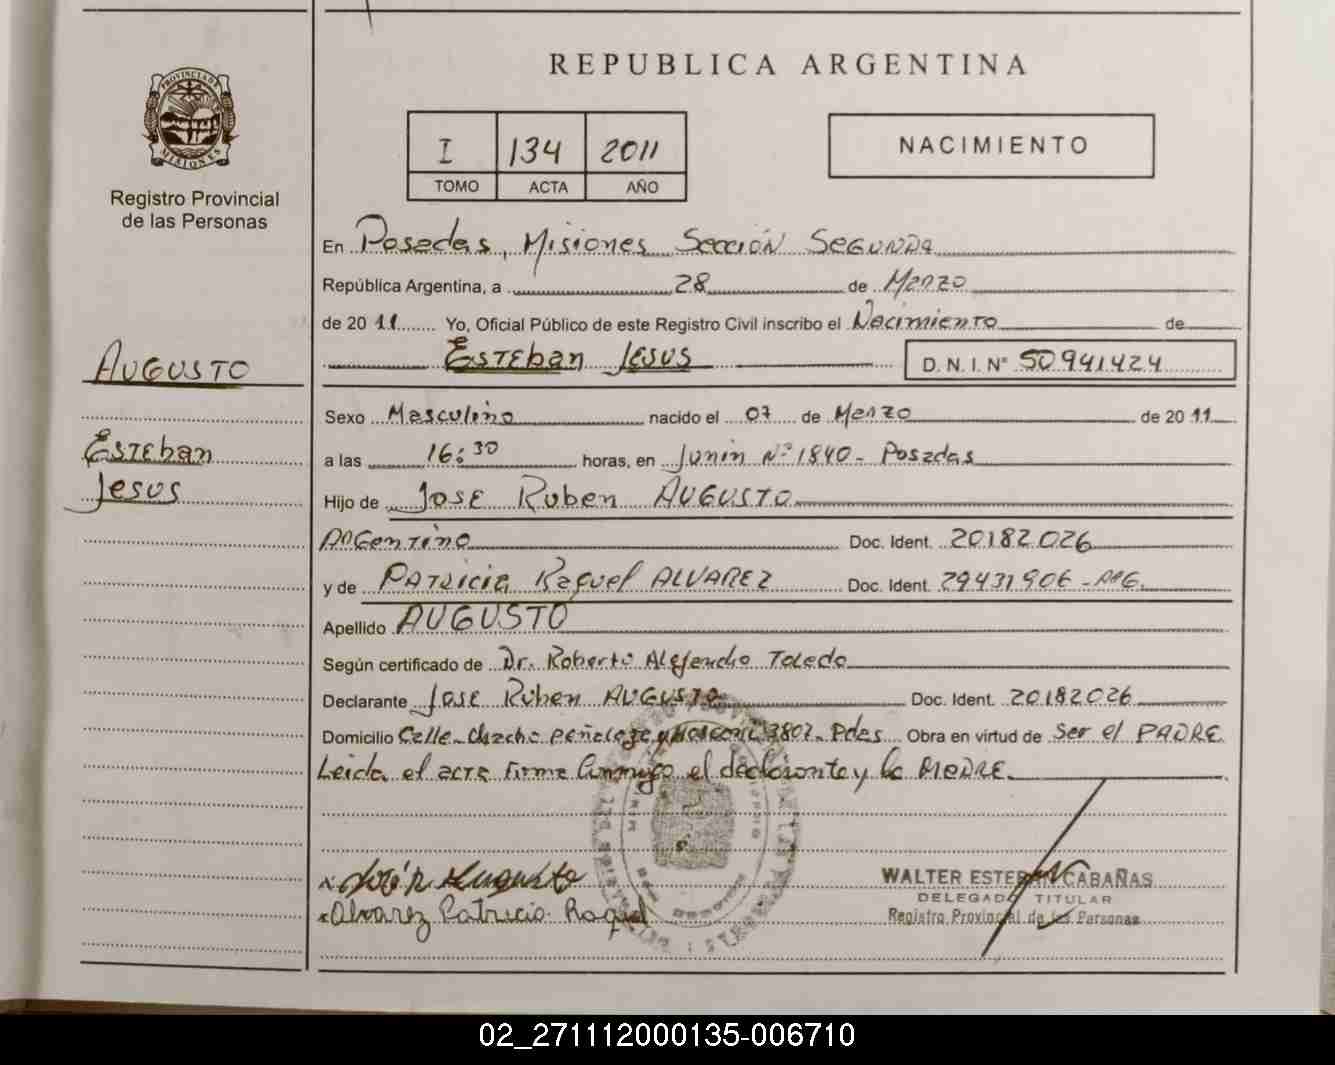 REPUBLICA ARGENTINA
PROVINCIA DE MISIONES
Registro Provincial
de las Personas
I 134 2011
TOMO ACTA AÑO
NACIMIENTO
En Posadas, Misiones Sección SEGUNDA
República Argentina, a 28 de Marzo
de 2011 Yo, Oficial Público de este Registro Civil inscribo el Nacimiento de
ESTEban JESUS D. N. I. Nº 50941424
AUGUSTO
ESTEban
Jesus
Sexo Masculino nacido el 07 de Marzo de 2011
a las 16:30 horas, en Junin Nº 1840 - Posadas
Hijo de JOSE Ruben AUGUSTO
Argentino Doc. Ident. 20182026
y de PATRICIA Raquel ALVAREZ Doc. Ident. 29431906 - ARG.
Apellido AUGUSTO
Según certificado de Dr. Roberto Alejandro Toledo
Declarante JOSE Ruben AUGUSTO Doc. Ident. 20182026
Domicilio Calle Chacho Peñaloza 3802 - Pdas Obra en virtud de Ser el PADRE
Leida el acta firma Conmigo el declarante y la MADRE
Augusto
Alvarez Patricia Raquel
WALTER ESTEBAN CABAÑAS
DELEGADO TITULAR
Registro Provincial de las Personas
02_271112000135-006710